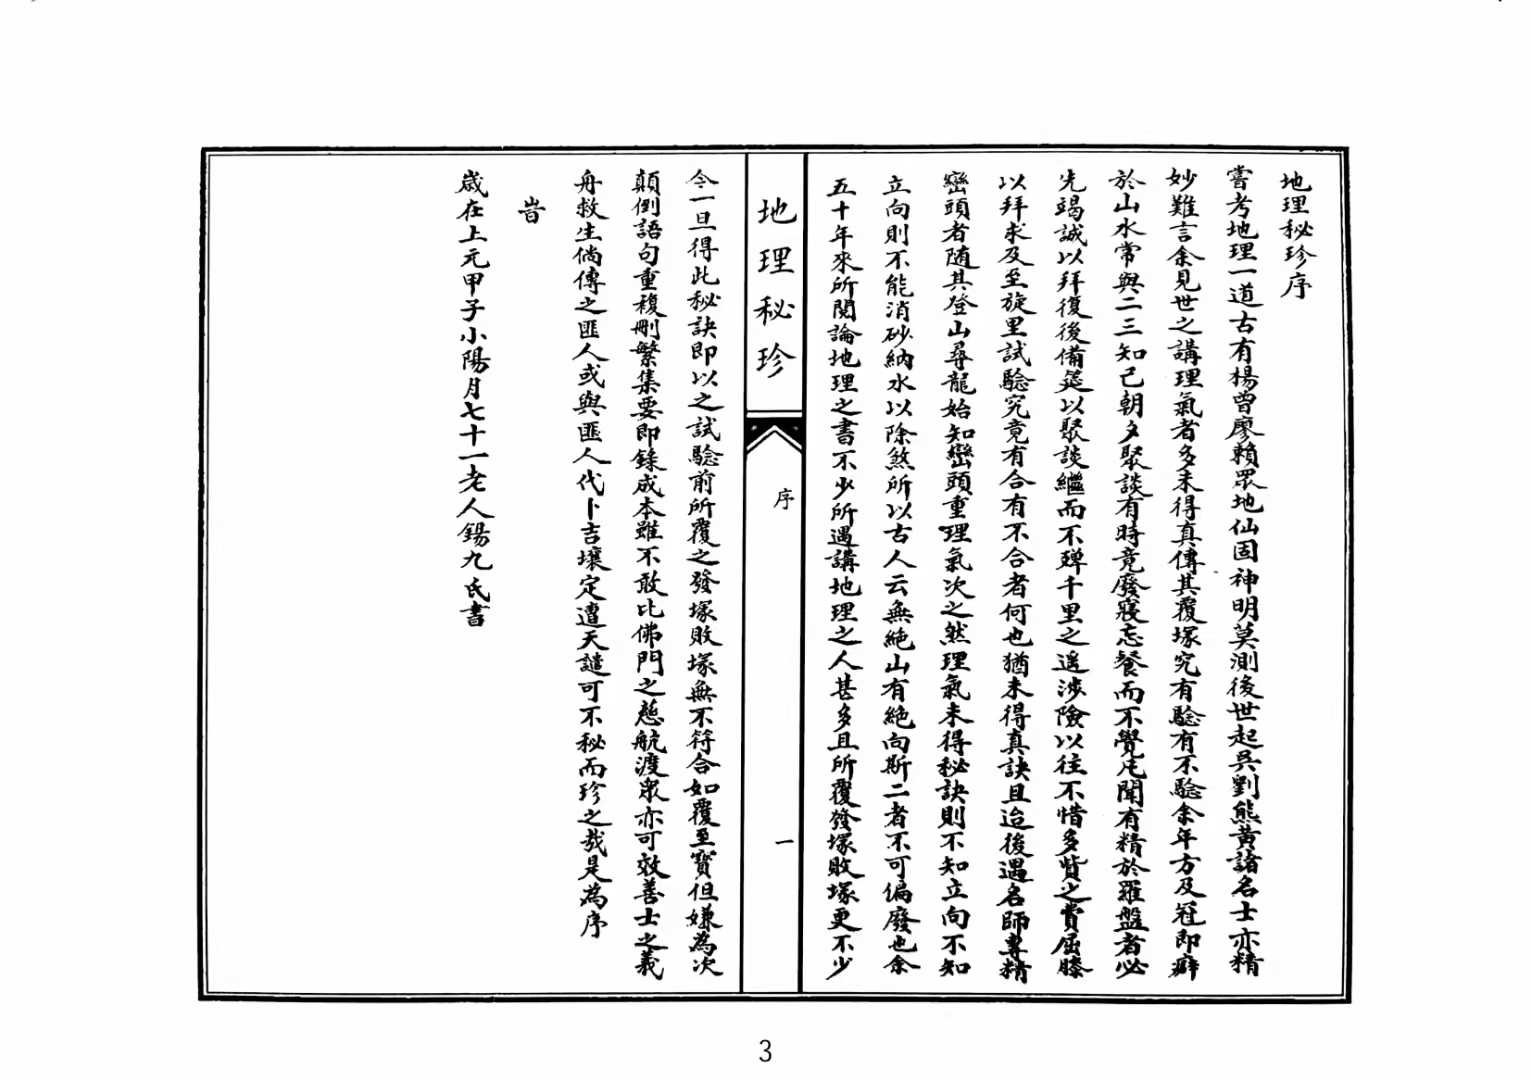 地理秘珍序
嘗考地理一道古有楊曾廖賴眾地仙固神明莫測後世起吳劉熊黃諸名士亦精
妙難言余見世之講理氣者多未得真傳其覆塚究有驗有不驗余年方及冠即癖
於山水常與二三知己朝夕聚談有時竟廢寢忘餐而不覺凡聞有精於羅盤者必
先竭誠以拜復後備筵以聚談繼而不殫千里之遥涉險以往不惜多貲之費屈膝
以拜求及至旋里試驗究竟有合有不合者何也猶未得真訣且迨後遇名師專精
巒頭者随其登山尋龍始知巒頭重理氣次之然理氣未得秘訣則不知立向不知
立向則不能消砂納水以除煞所以古人云無絶山有絶向斯二者不可偏廢也余
五十年來所閱論地理之書不少所遇講地理之人甚多且所覆發塚敗塚更不少
地理秘珍
序
一
今一旦得此秘訣即以之試驗前所覆之發塚敗塚無不符合如覆至寳但嫌為次
顛倒語句重複刪繁集要即錄成本雖不敢比佛門之慈航渡衆亦可效善士之義
舟救生倘傳之匪人或與匪人代卜吉壤定遭天譴可不秘而珍之哉是為序
旹
歲在上元甲子小陽月七十一老人錫九氏書
3